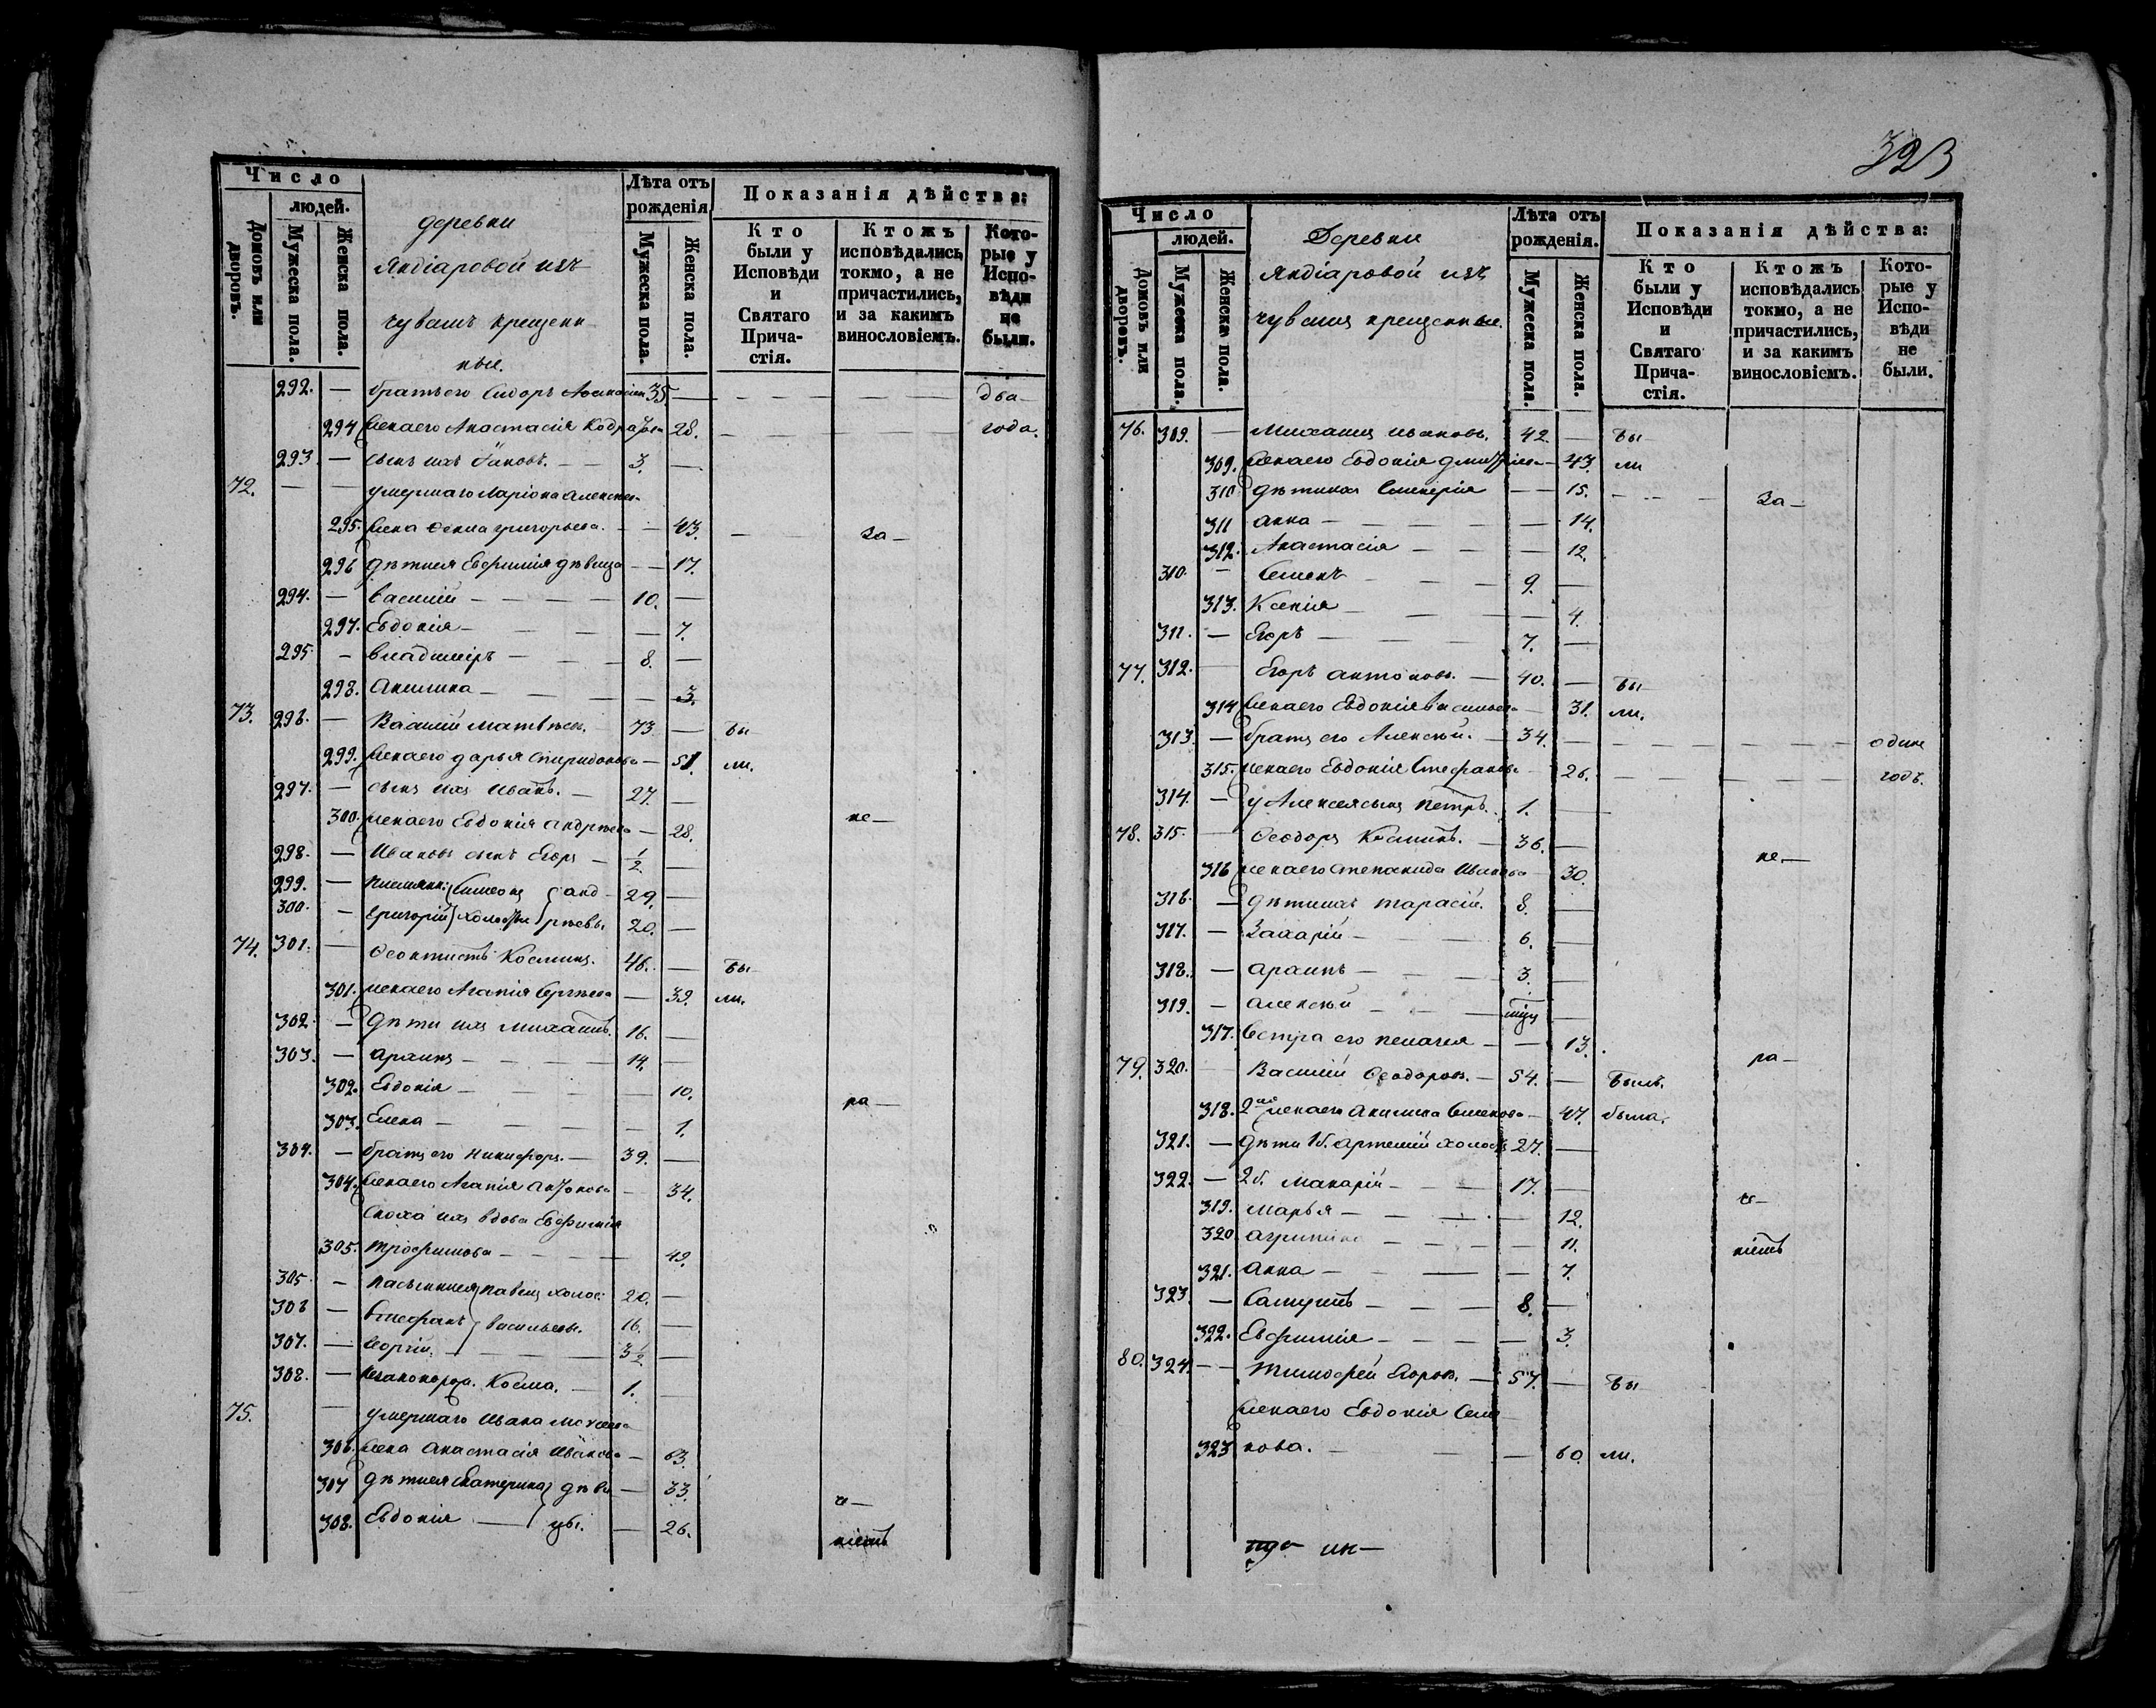 Число
людей.
Домовъ или дворовъ.
Мужеска пола.
Женска пола.
деревни
Яндіаровой изъ
чувашъ крещен-
ные.
Лѣта отъ рожденія
Мужеска пола.
Женска пола.
Показанія дѣйства:
Кто были у Исповѣди и Святаго Прича-стія.
Ктожъ исповѣдались токмо, а не причастились, и за какимъ винословіемъ.
Кото-рые у Испо-вѣди не были.
292. — братъ его Сидоръ 35. — два
294 жена его Анастасія 28. года.
293. — сынъ ихъ Іаковъ. — — 3. —
72. — — умершаго Ларіона
295. жена Ѳекла григорьева. — — 43. — за —
296 дѣти ея Евфимія дѣвица — — 17.
294. — василій — — — — 10. —
297. Евдокія — — — — — 7.
295. — владиміръ — — — 8. —
298. Акилина — — — — — 3.
73. 296. — Василій Матвѣевъ. — 73 — бы
299. жена его дарья Спиридонова — 51. ли.
297. — сынъ ихъ Иванъ. — 27. —
300. жена его Евдокія андреева — 28. не —
298. — Ивановъ сынъ Егоръ — 1/2 —
299. — Симеонъ анд- 29. —
300. — григорій холосты рѣевы 20. —
74. 301. — Ѳеоктистъ Косминъ. 46. — бы
301. жена его Агапія Сергѣева — 39. ли.
302 — дѣти ихъ Михаилъ. 16. —
303. — — — — — 14. —
302. Евдокія — — — — — 10. ра —
303. Елена — — — — — 1.
304. — братъ его Никифоръ. — 39. —
304. жена его Агапія антонова — 34.
Сноха ихъ вдова Евфимія
305. трофимова — — — — — 49.
305 — пасынки ея павелъ холос: 20. —
306 — Стефанъ васильевы. 16. —
307. — Георгій. — — — 3 1/2 —
308. — незаконорож. Косма. — 1. —
75. — умершаго Ивана
306. жена Анастасія Иванова — 63.
307 дѣти ея Екатерина дѣви — 33. и —
308. Евдокія — цы. — 26. ніемъ
323
Число
людей.
Домовъ или дворовъ.
Мужеска пола.
Женска пола.
Деревни
Яндіаровой изъ
чувашъ крещенные.
Лѣта отъ рожденія.
Мужеска пола.
Женска пола.
Показанія дѣйства:
Кто были у Исповѣди и Святаго Прича-стія.
Ктожъ исповѣдались токмо, а не причастились, и за какимъ винословіемъ.
Кото-рые у Испо-вѣди не были.
76. 309. — Михаилъ ивановъ. 42. — бы
309. жена его Евдокія дмитріева — 43. ли
310 дѣти ихъ — — 15. — — — за —
311 анна — — — — — 14.
312. Анастасія — — — 12.
310. — Семенъ — — — 9. —
313. Ксенія — — — — 4.
311. — Егоръ — — — 7. —
77. 312. — Егоръ антоновъ. — 40. — бы
314 жена его Евдокія васильева — 31. ли.
313. — братъ его Алексѣй. — 34. — одинъ
315. жена его Евдокія Стефанова — 26. — годъ.
314. — у Алексея сынъ петръ. 1. —
78. 315. — Ѳеодоръ Косминъ. — 36. — не. —
316 жена его Степанида Иванова 30.
316. — дѣти ихъ тарасій. 8. —
317. — Захарій — — — 6. —
318. — — — — 3. —
319. — алексѣй — — —
317. Сестра его пелагея — — 13. ра —
79. 320. — Василій Ѳеодоровъ. — 54. — былъ.
318. 2ю жена его Акилина Семенова — 47. была.
321. — дѣти 1б. артемій холостъ 27. —
322. — 2б. Макарій — — — 17. — и —
319. марья — — — — 12.
320 агрипина — — — — 11. ніемъ
321. анна — — — — 7.
323. — Самуилъ — — — 8. —
322. Евфимія — — — — 3.
80. 324. — — тимофей Егоровъ. — 57. — бы
жена его Евдокія Семе-
323 нова. — — — 60. ли.